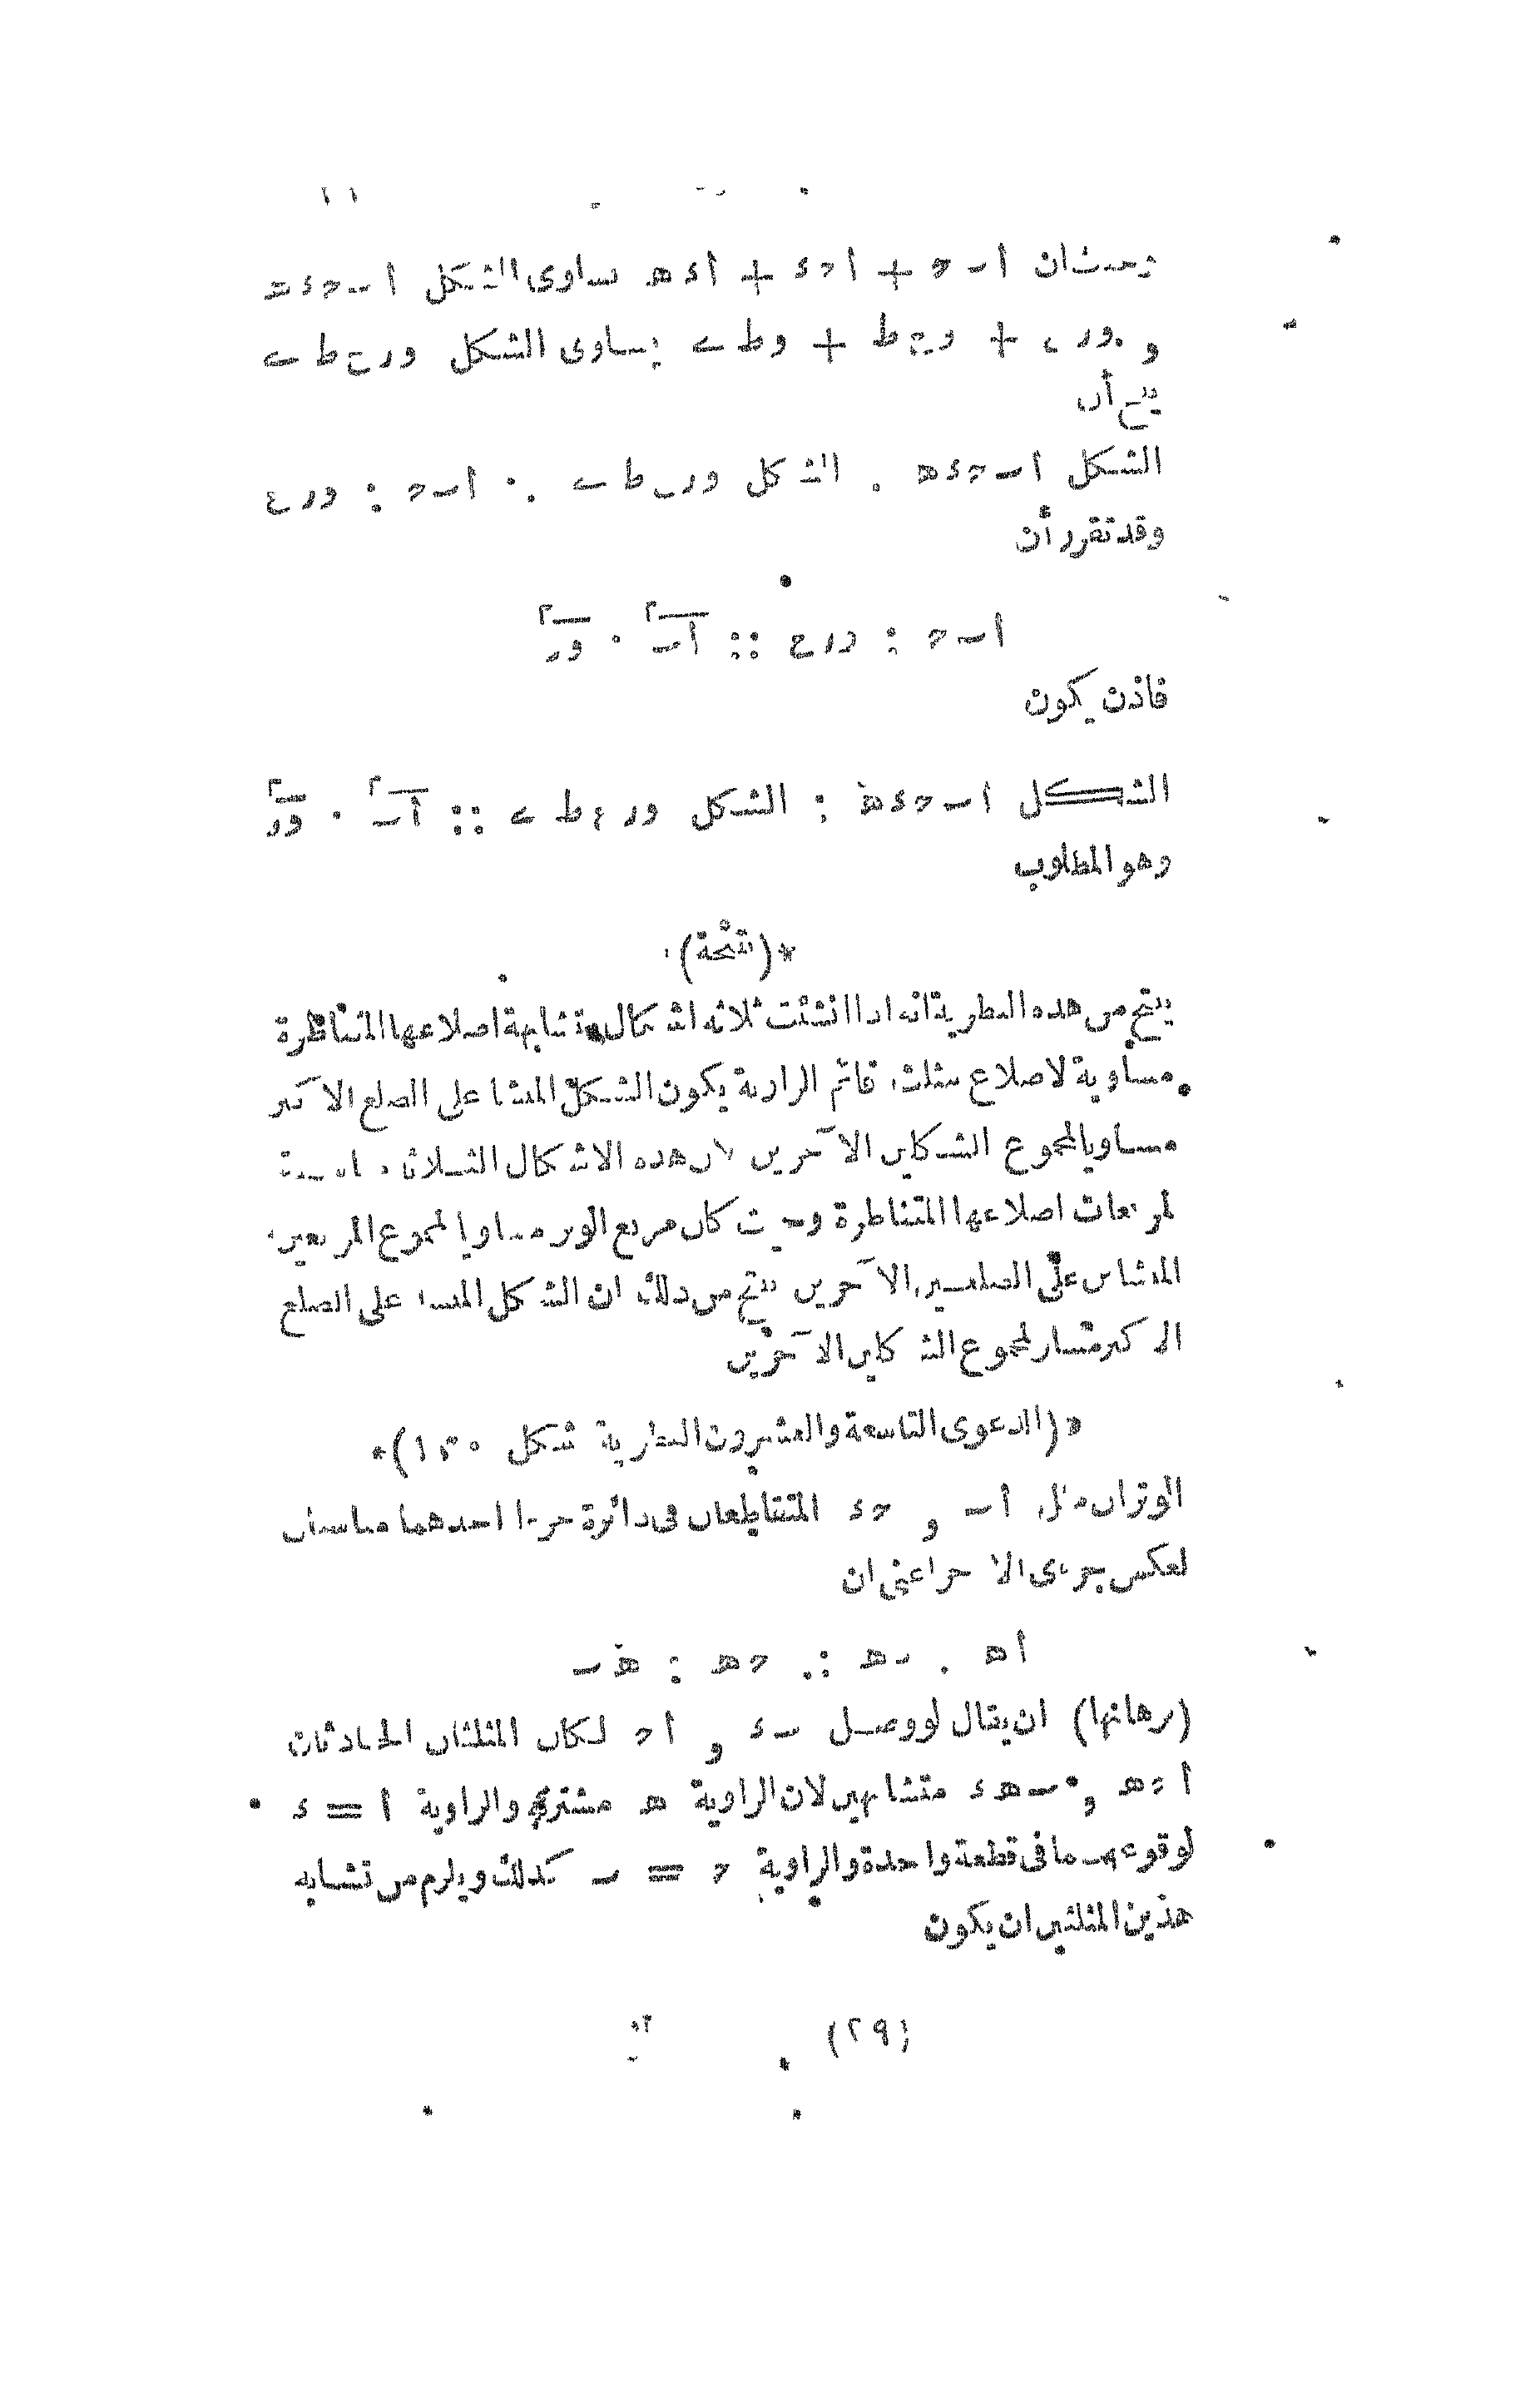 وحيث ان أ ب ح + أ ح ء + أ ء ه يساوى الشكل أ ب ح ء ه
و ور ح + و ح ط + و ط ى يساوى الشكل و ر ح ط ى
ينتج أن
الشكل أ ب ح ء ه : الشكل و ر ح ط ى :: أ ب ح : و ر ع
وقد تقرر أن
أ ب ح : و ر ع :: أب٢ : ور٢
فاذن يكون
الشكل أ ب ح ء ه : الشكل و ر ع ط ى :: أب٢ : ور٢
وهو المطلوب
*(نتيجة)*
ينتج من هذه النظرية انه اذا انشئت ثلاثة اشكال متشابهة اضلاعها المتناظرة
مساوية لاضلاع مثلث قائم الزاوية يكون الشكل المنشأ على الضلع الاكبر
مساويا لمجموع الشكلين الآخرين لان هذه الاشكال الثلاثة مناسبة
لمربعات اضلاعها المتناظرة وحيث كان مربع الوتر مساويا لمجموع المربعين
المنشاين على الضلعين الآخرين ينتج من ذلك ان الشكل المنشا على الضلع
الاكبر مساو لمجموع الشكلين الآخرين
*(الدعوى التاسعة والعشرون النظرية شكل ١٣٠)*
الوتران مثل أ ب و ح ء المتقاطعان فى دائرة جزءا احدهما مناسبان
لعكس جزءى الاخر اعنى ان
أ ه : ء ه :: ح ه : ه ب
(برهانها) ان يقال لو وصل ب ء و أ ح لكان المثلثان الحادثان
أ ح ه و ب ه ء متشابهين لان الزاوية ه مشتركة والزاوية أ = ء
لوقوعهما فى قطعة واحدة والزاوية ح = ب كذلك ويلزم من تشابه
هذين المثلثين ان يكون
(٢٩)